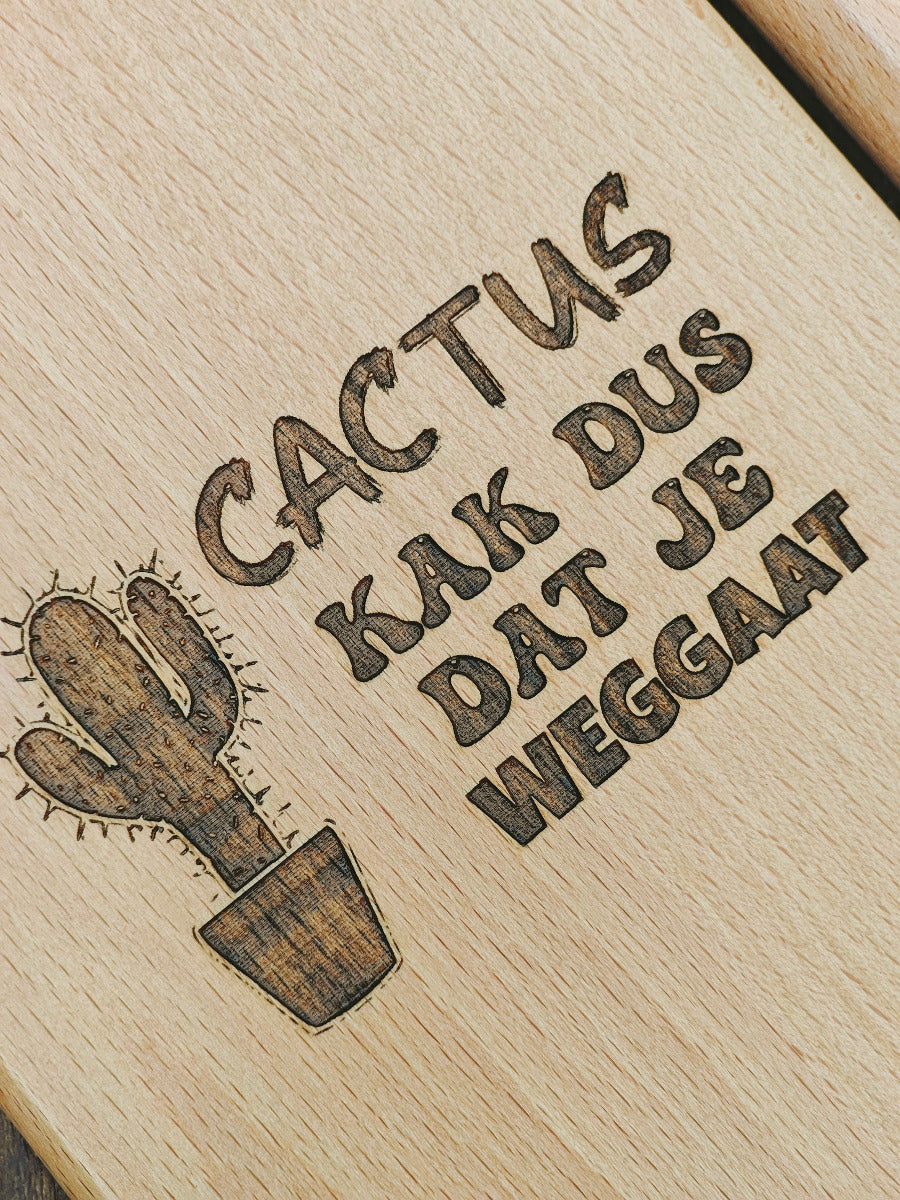 CACTUS
KAK DUS
DAT JE
WEGGAAT